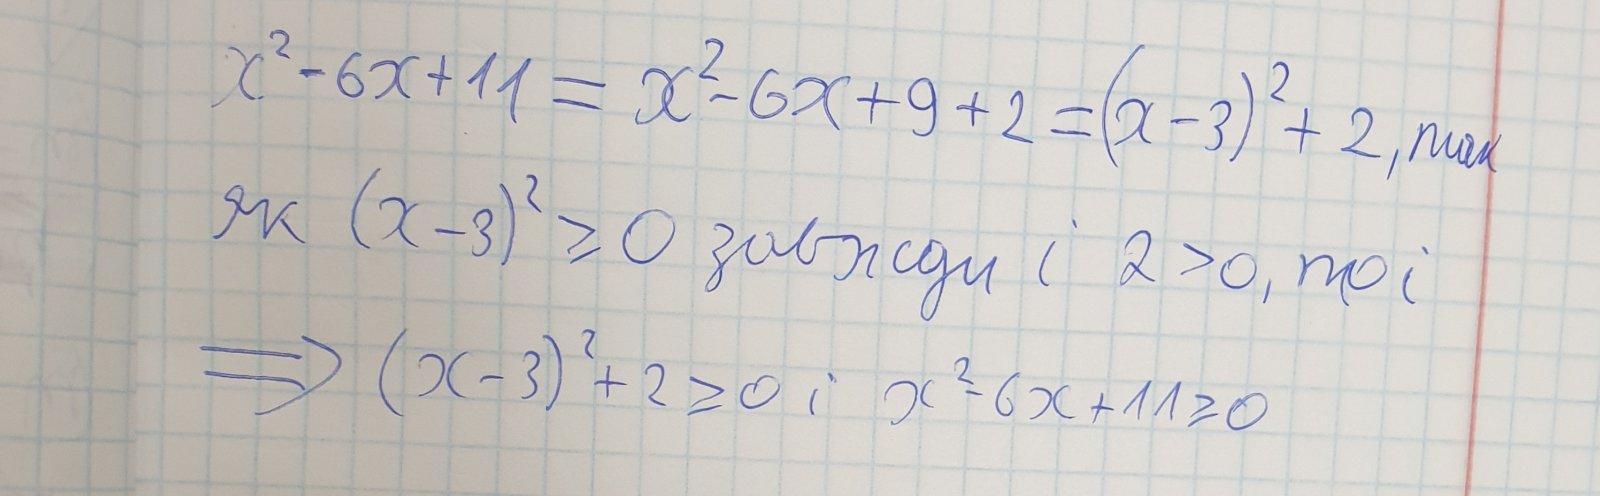 x² - 6x + 11 = x² - 6x + 9 + 2 = (x - 3)² + 2, так
як (x - 3)² ⩾ 0 завжди і 2 > 0, то і
⟹ (x - 3)² + 2 ⩾ 0 і x² - 6x + 11 ⩾ 0